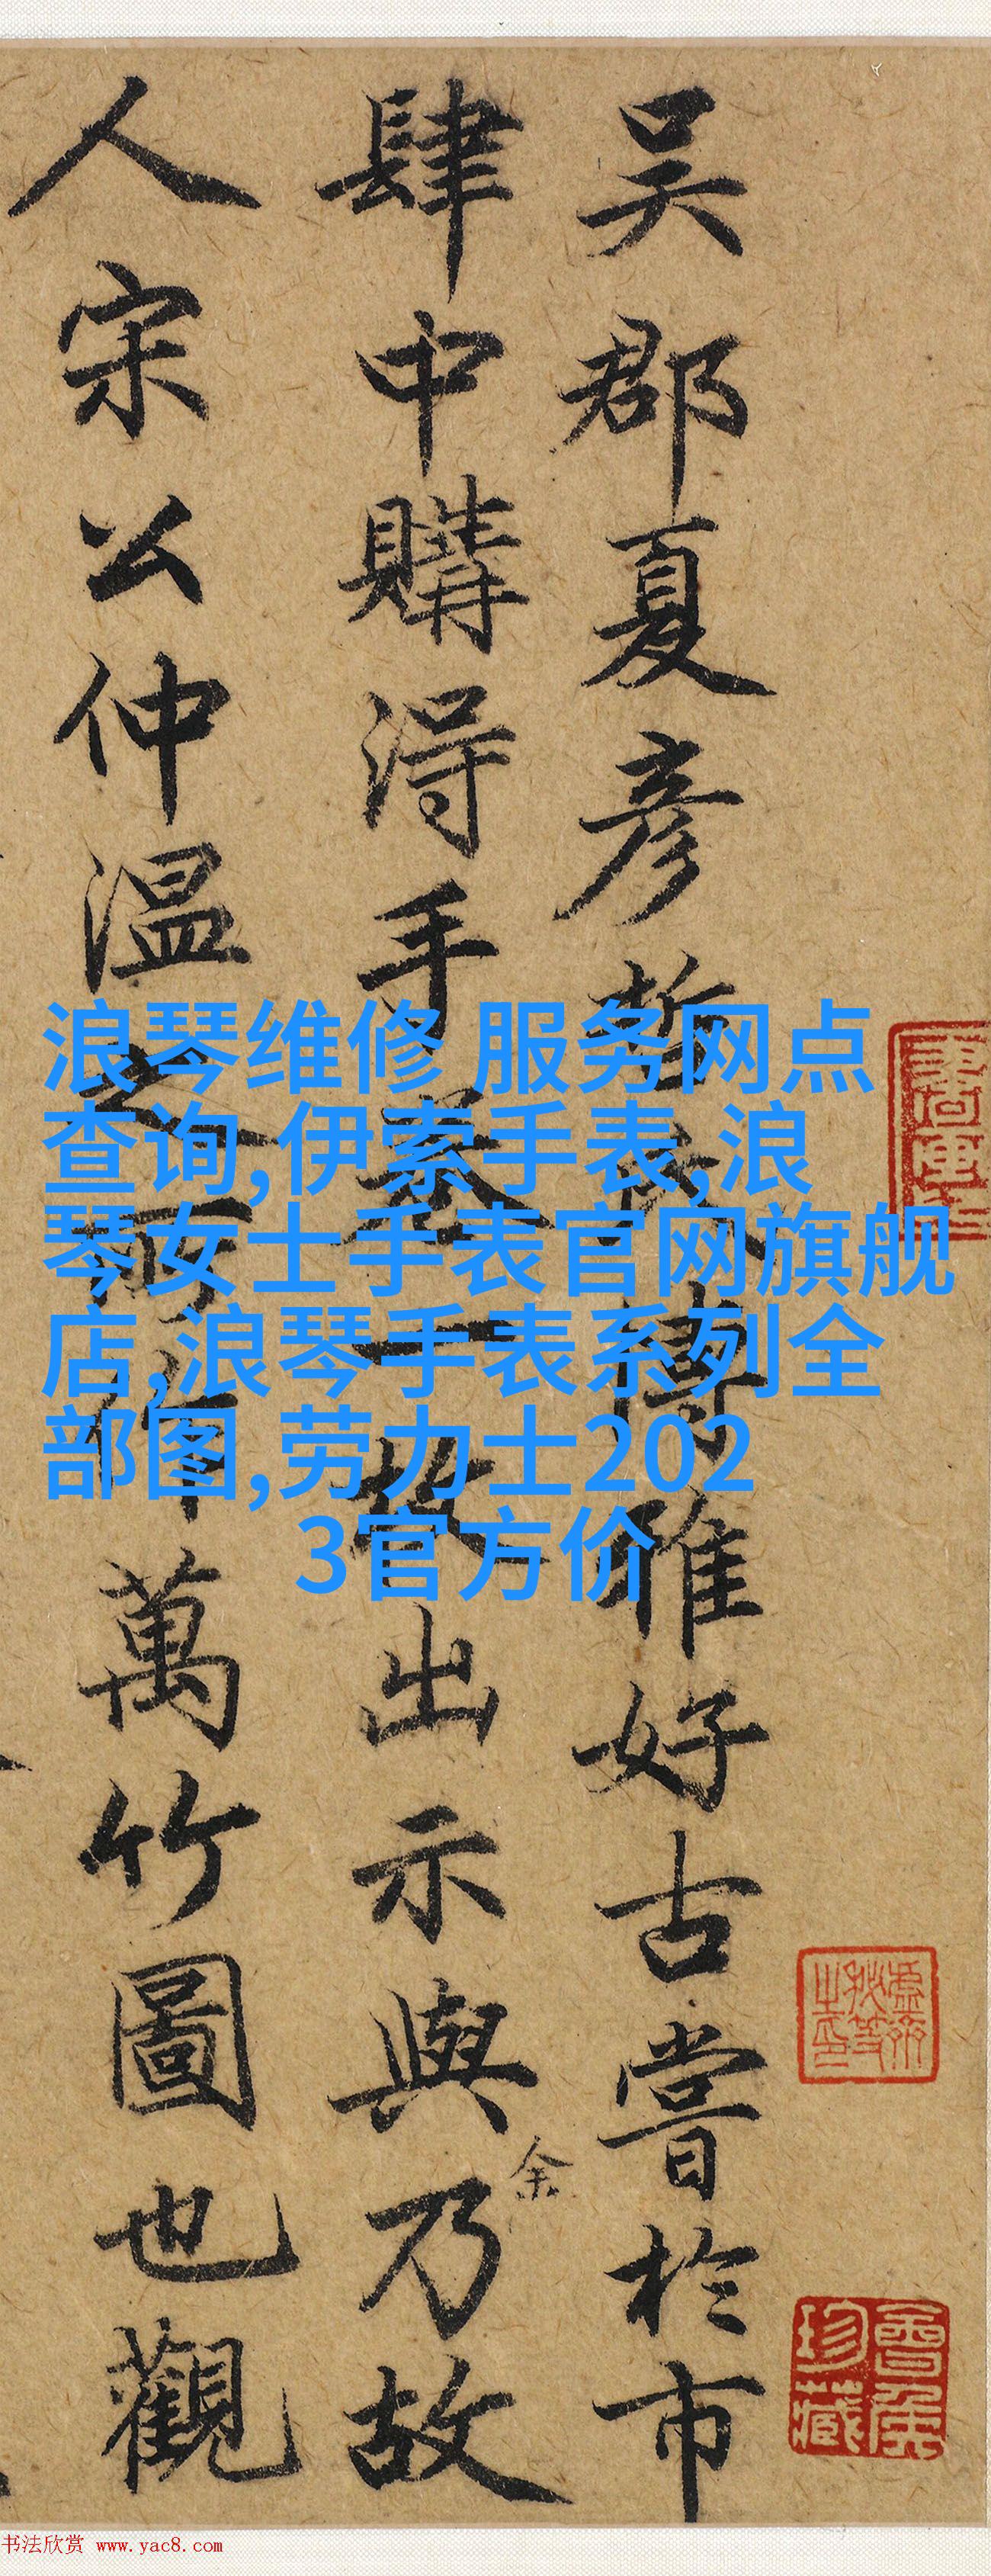 吴郡夏彦哲氏博雅好古嘗於市
肆中購得手卷一枚出示與余乃故
人宋公仲溫之所作萬竹圖也觀
浪琴维修 服务网点
查询,伊索手表,浪
琴女士手表官网旗舰
店,浪琴手表系列全
部图,劳力士202
3官方价
會侯珍藏
书法欣赏 www.yac8.com